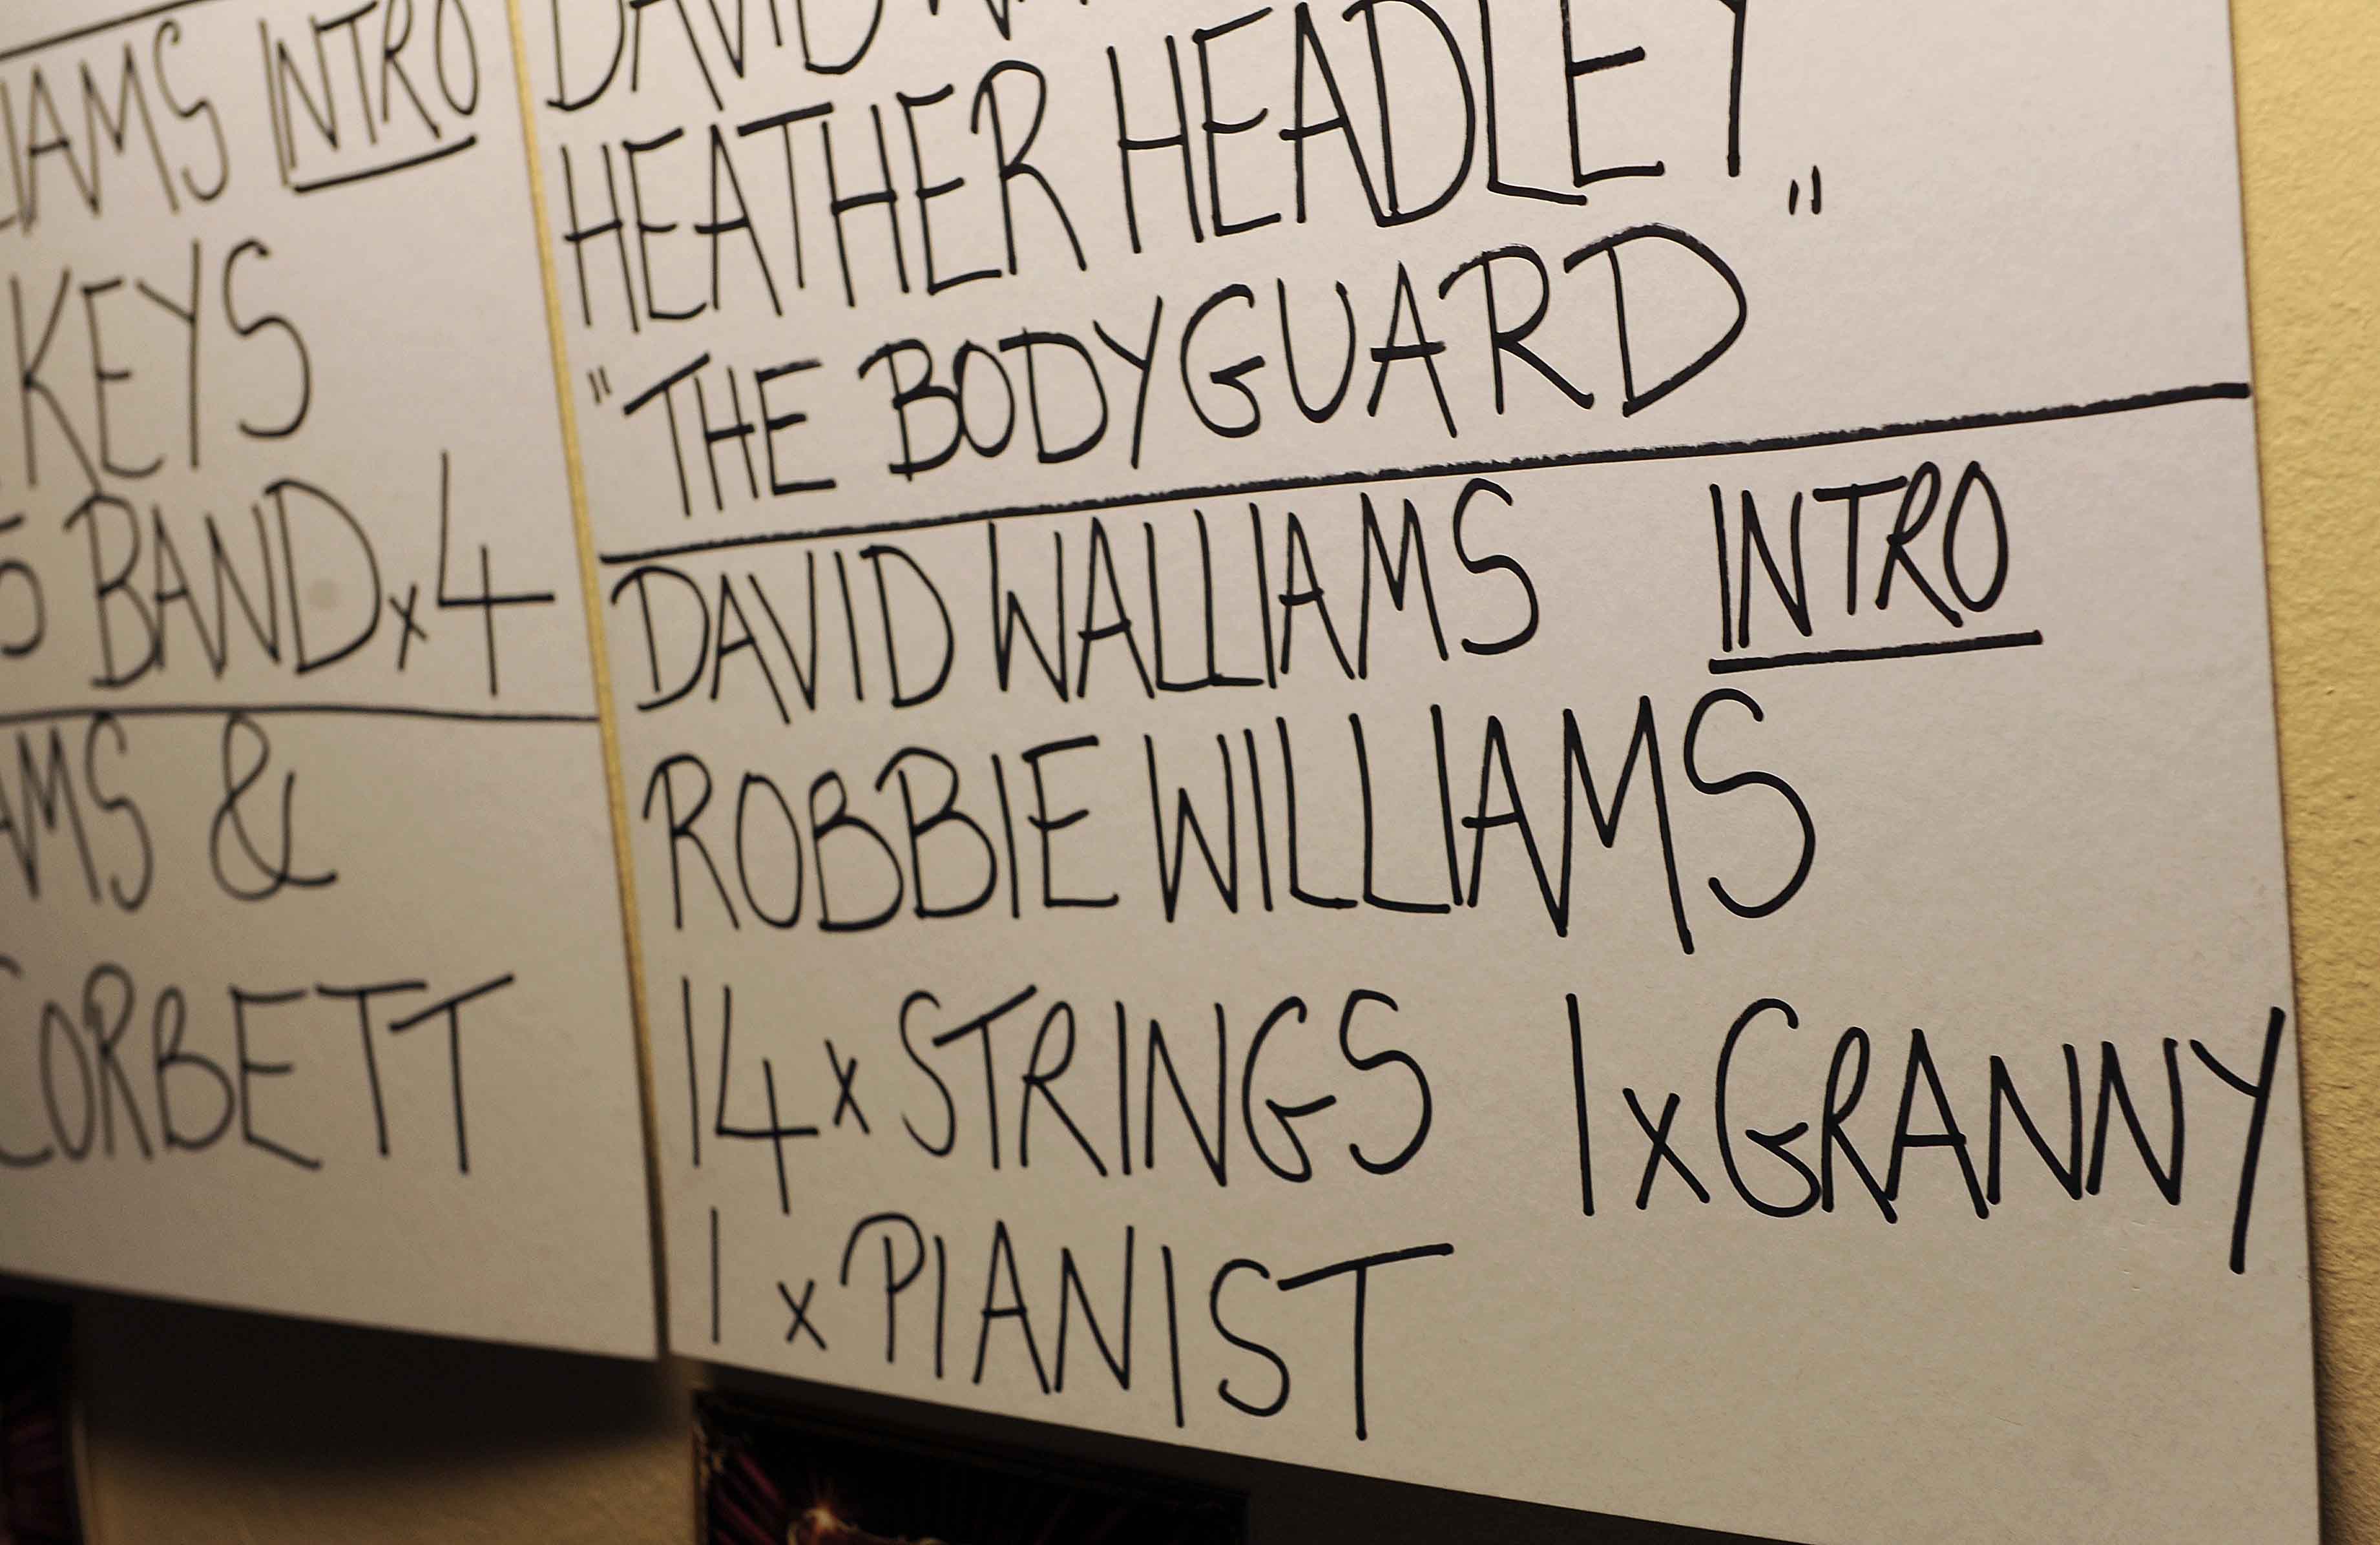 INTRO
KEYS
BAND x 4
&
CORBETT
DAVID
HEATHER HEADLEY
"THE BODYGUARD"
DAVID WALLIAMS INTRO
ROBBIE WILLIAMS
14 x STRINGS 1 x GRANNY
1 x PIANIST